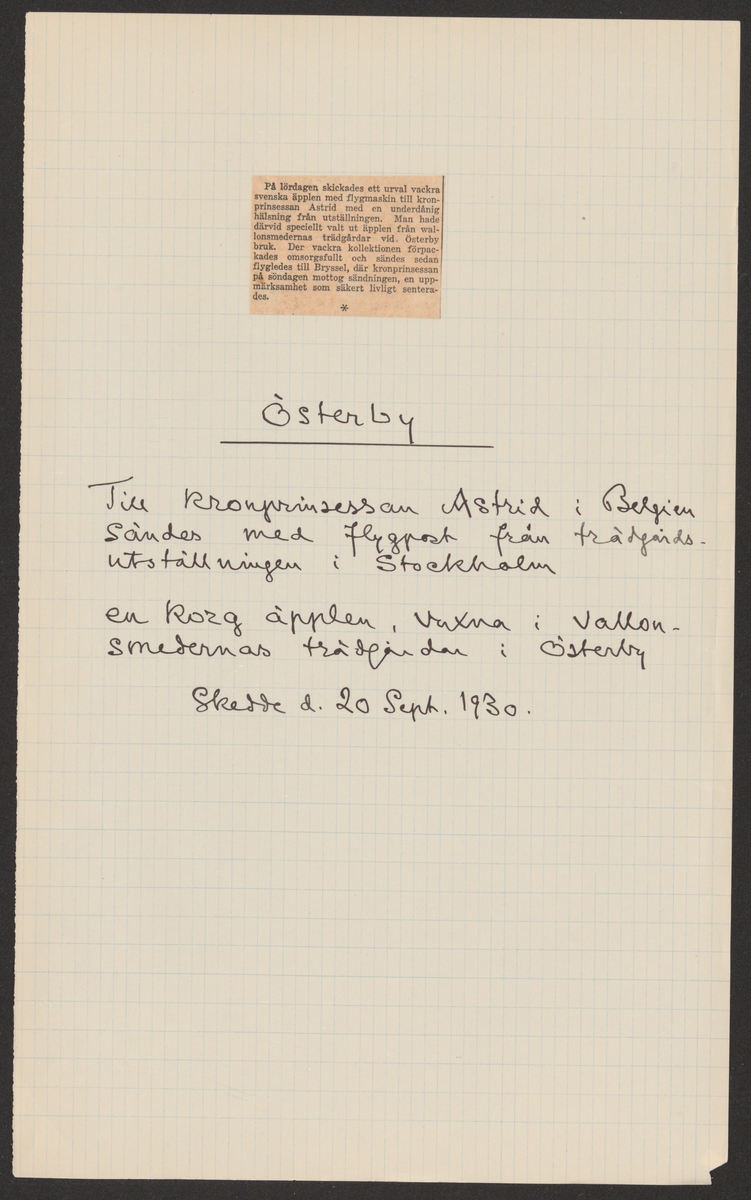 På lördagen skickades ett urval vackra
svenska äpplen med flygmaskin till kron-
prinsessan Astrid med en underdånig
hälsning från utställningen. Man hade
därvid speciellt valt ut äpplen från wal-
lonsmedernas trädgårdar vid. Österby
bruk. Der vackra kollektionen förpac-
kades omsorgsfullt och sändes sedan
flygledes till Bryssel, där kronprinsessan
på söndagen mottog sändningen, en upp-
märksamhet som säkert livligt sentera-
des.
*
Österby
Till Kronprinsessan Astrid i Belgien
Sändes med flygpost från trädgårds-
utställningen i Stockholm
en korg äpplen, vuxna i Vallon-
smedernas trädgårdar i Österby
Skedde d. 20 Sept. 1930.